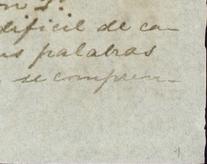 dificil de ca-
us palabras
se compren-